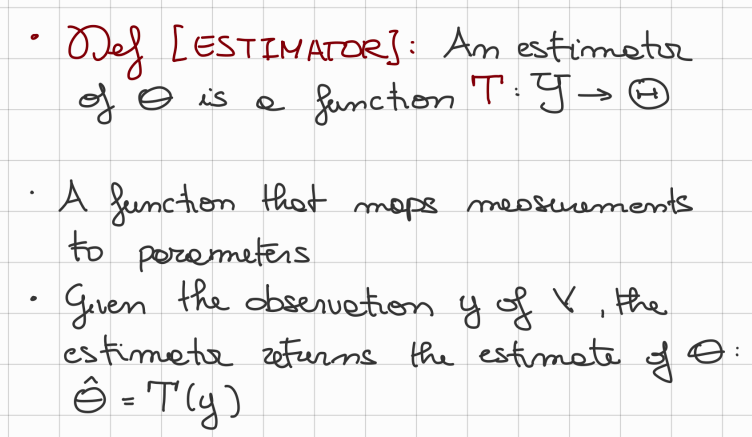 • Def [ESTIMATOR]: An estimator
of θ is a function T: 𝒴 → Θ
• A function that maps measurements
to parameters
• Given the observation y of Y, the
estimator returns the estimate of θ:
θ̂ = T(y)